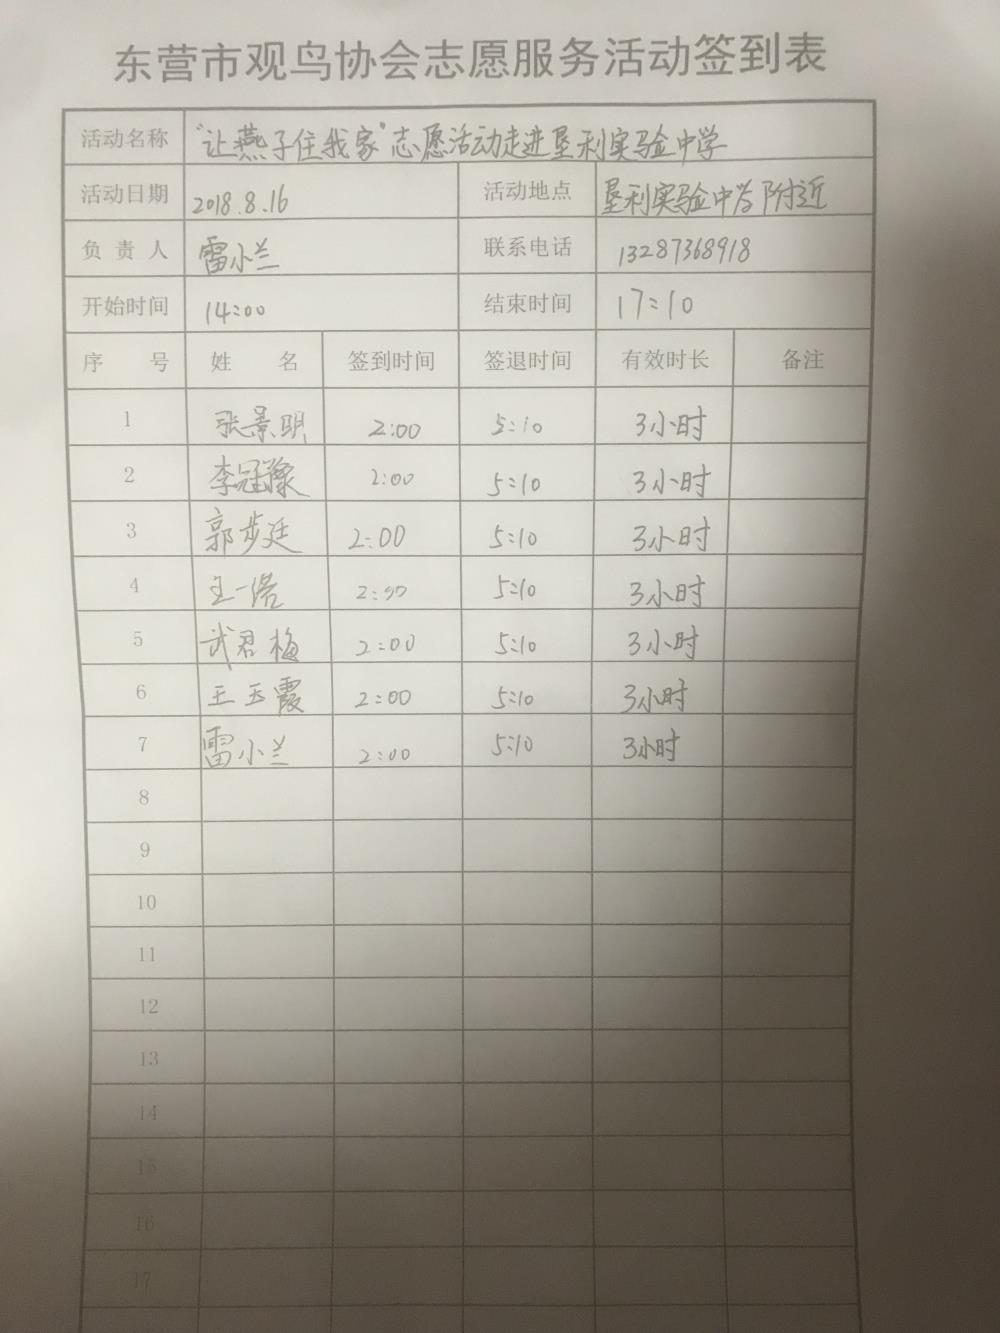 东营市观鸟协会志愿服务活动签到表
活动名称 “让燕子住我家”志愿活动走进垦利实验中学
活动日期 2018.8.16 活动地点 垦利实验中学附近
负责人 雷小兰 联系电话 13287368918
开始时间 14:00 结束时间 17:10
序号 姓名 签到时间 签退时间 有效时长 备注
1 张景明 2:00 5:10 3小时
2 李冠豫 2:00 5:10 3小时
3 郭步廷 2:00 5:10 3小时
4 王一 2:00 5:10 3小时
5 武君梅 2:00 5:10 3小时
6 王玉霞 2:00 5:10 3小时
7 雷小兰 2:00 5:10 3小时
8
9
10
11
12
13
14
15
16
17